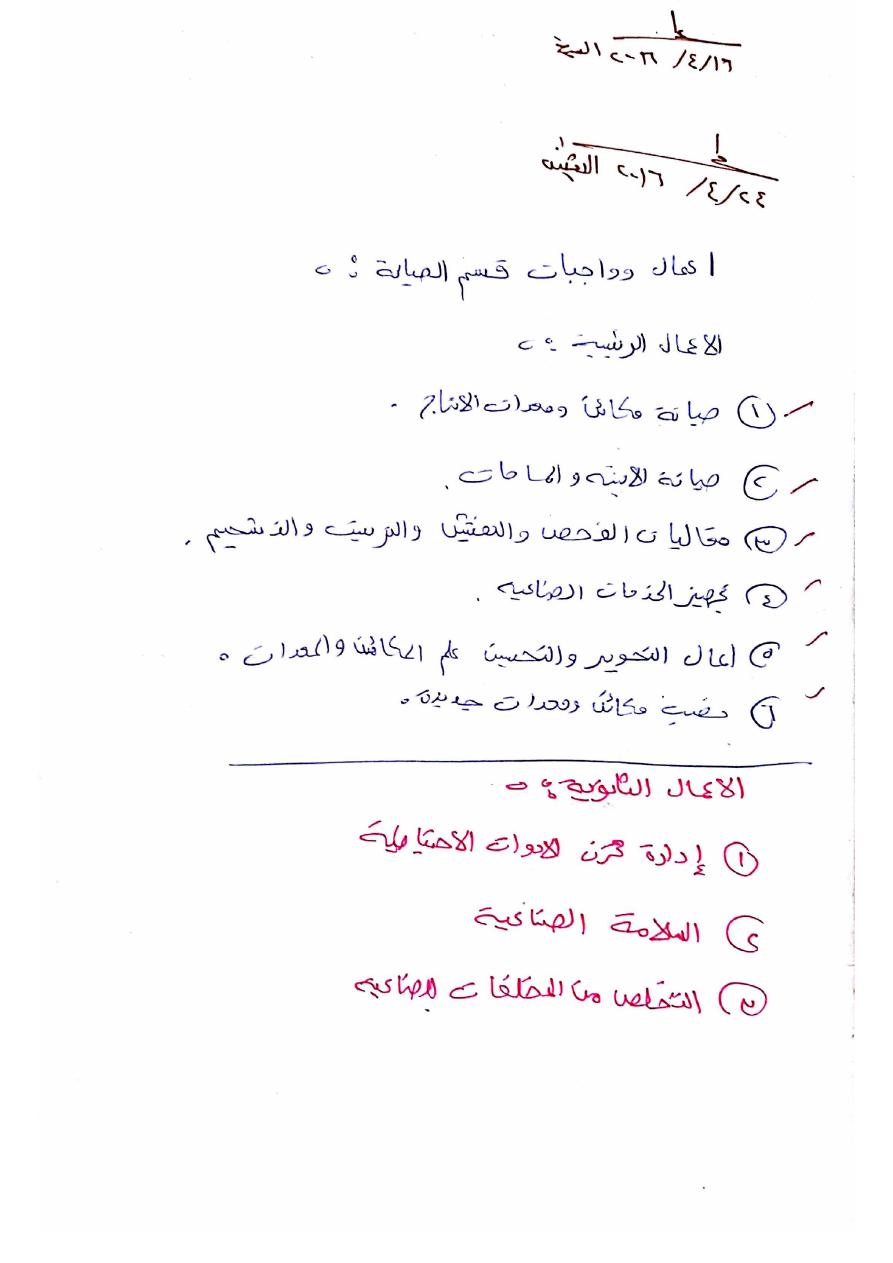 ٢٠١٦ /٤/١٦
٢٠١٦ /٤/٢٤
اعمال وواجبات قسم الصيانة :
الاعمال الرئيسية :
① صيانة مكائن ومعدات الانتاج .
② صيانة الابنيه والساحات .
③ فعاليات الفحص والتفتيش والتزييت والتشحيم .
④ تجهيز الخدمات الصناعيه .
⑤ اعمال التحوير والتحسين على المكائن والمعدات .
⑥ نصب مكائن ومعدات جديدة .
الاعمال الثانوية :
① إدارة مخزن الادوات الاحتياطية
② السلامة الصناعية
③ التخلص من المخلفات الصناعيه